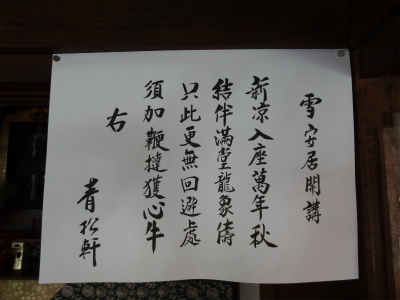 雪安居開講
新凉入座萬年秋
結伴滿堂龍象儔
只此更無回避處
須加鞭撻獲心牛
右
青松軒